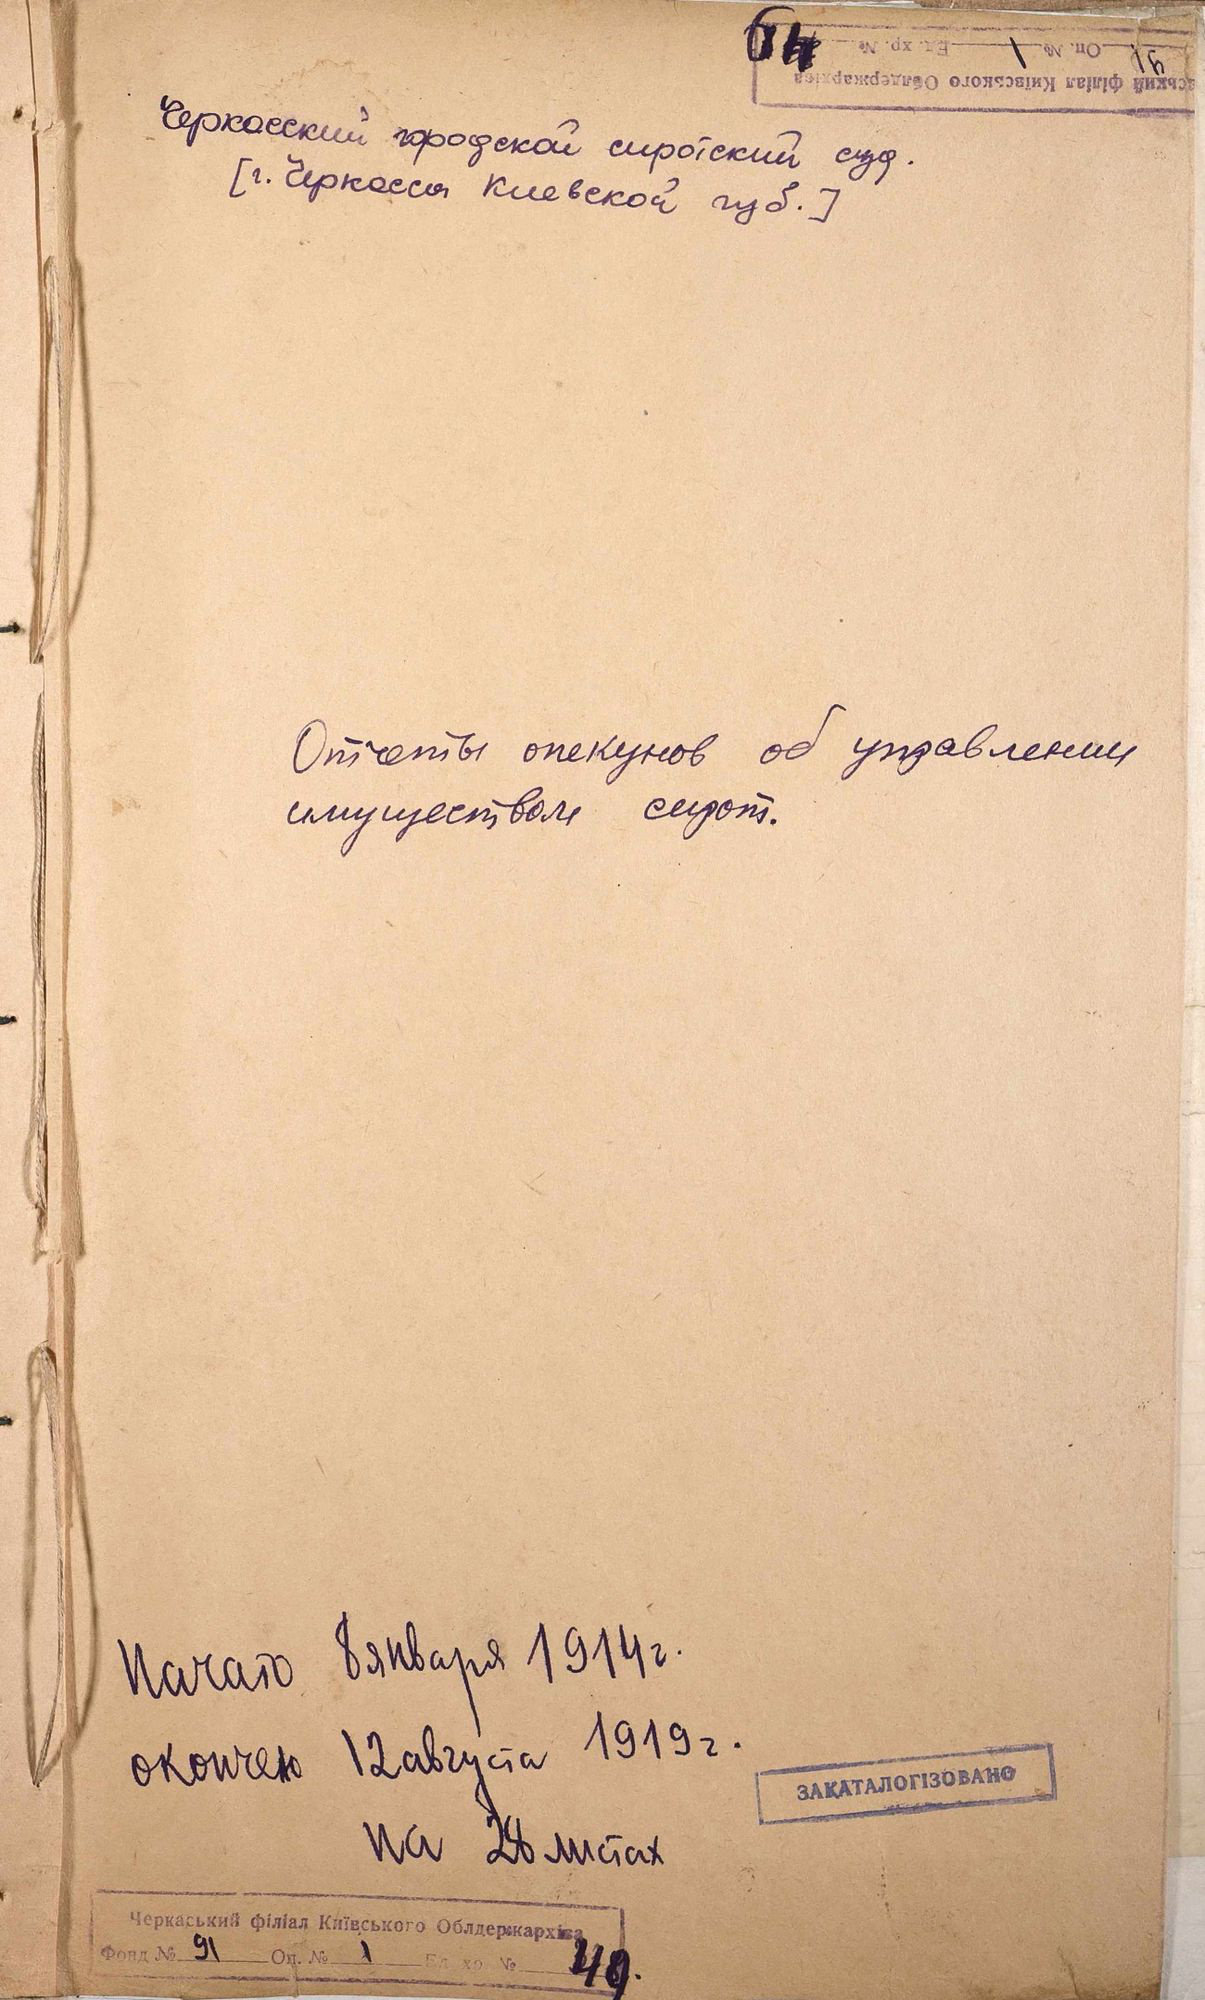 ський філіал Київського Облдержархіва
91 Оп. № 1 Ед. хр. №
Черкасский городской сиротский суд.
[г. Черкассы Киевской губ.]
Отчеты опекунов об управлении
имуществом сирот.
Начато 8 января 1914 г.
окончено 12 августа 1919 г.
на листах
ЗАКАТАЛОГІЗОВАНО
Черкаський філіал Київського Облдержархіва
Фонд № 91 Оп. № 1 Ед. хр. №